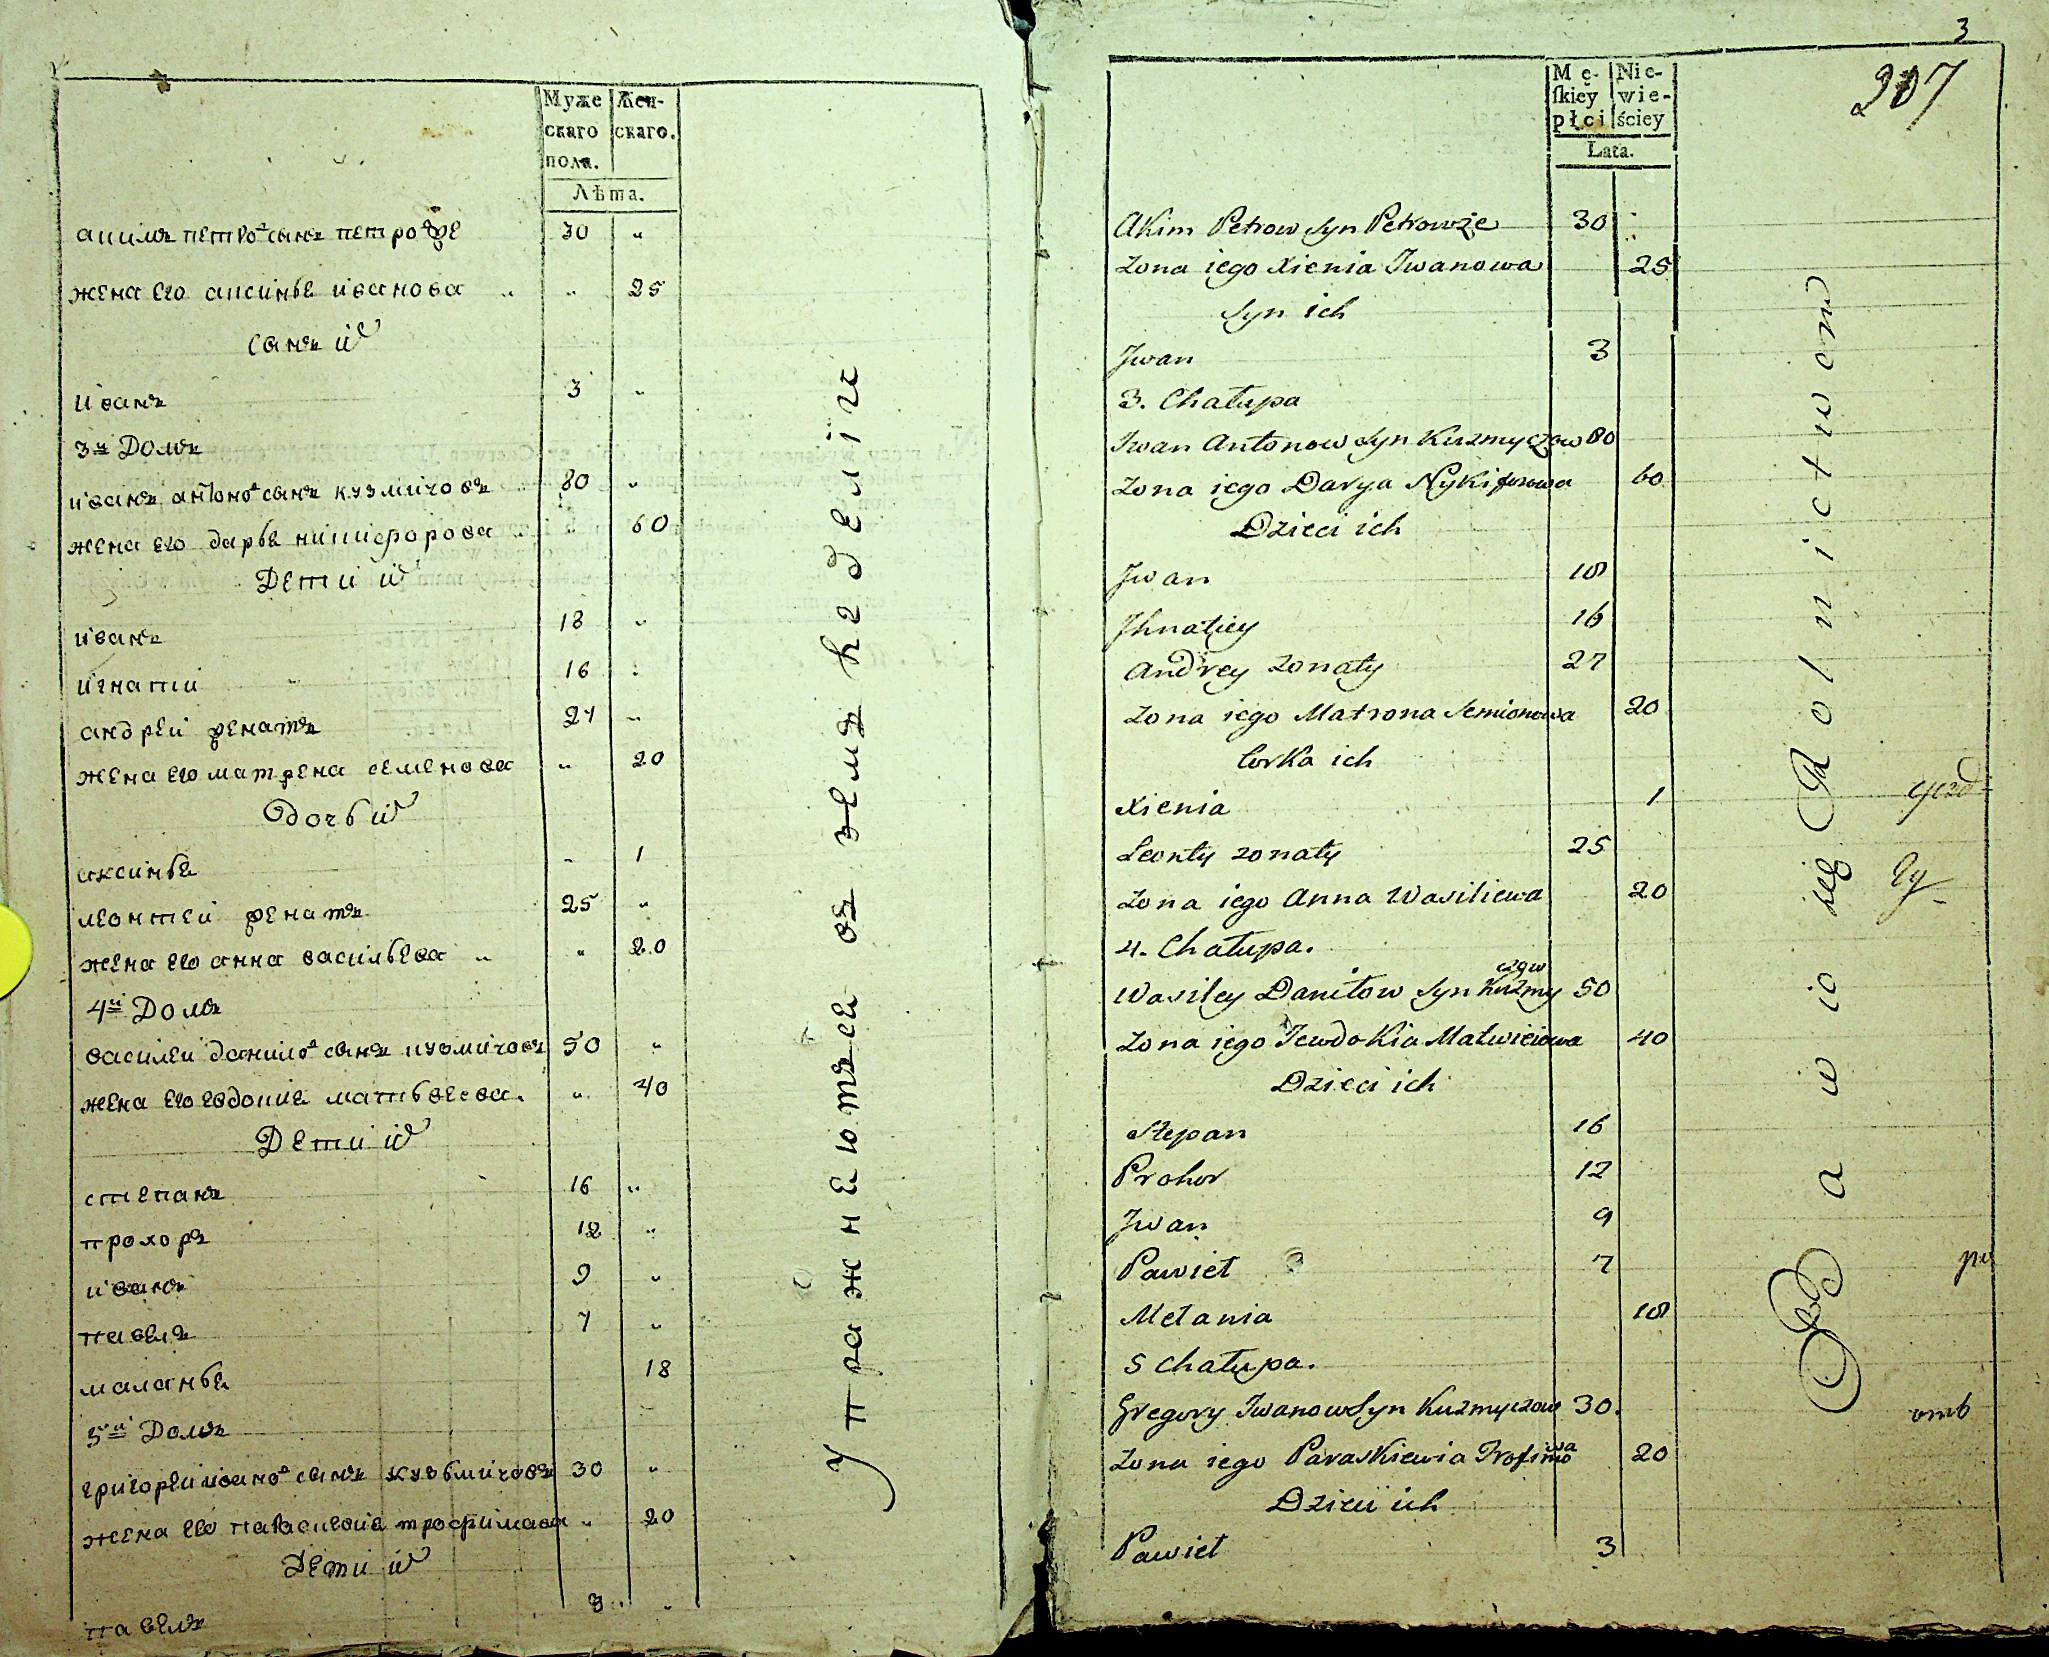 Муже
скаго
пола.
Жен-
скаго.
Лѣта.
акимъ петровъ сынъ петро
30 „
жена его аксинье иванова „ „ 25
сынъ их
иванъ 3 „
3й Домъ
иванъ антоновъ сынъ кузмичовъ 80 „
жена его дарье никифорова „ 60
Дети их
иванъ 18 „
игнатий 16 „
андрей женатъ 27 „
жена его матрена семенова „ 20
Одочь их
аксинье „ 1
леонтей женатъ 25 „
жена его анна васильева „ „ 20
4й Домъ
василей данилов сынъ кузмичовъ 50 „
жена его евдокие матвеева. „ 40
Дети их
степанъ 16 „
прохоръ 12 „
иванъ 9 „
павелъ 7 „
маланье 18
5й Домъ
григорей иванов сынъ кузьмичовъ 30 „
жена его параскевие трофимава „ 20
Дети их
павелъ 3 „ „
Упражнеютъса въ земле
3
207
Mę-
ſkiey
płci
Nie-
wie-
ściey
Lata.
Akim Petrow Syn Petrowże 30
Zona iego Xienia Iwanowa 25
Syn ich
Jwan 3
3. Chałupa
Iwan Antonow Syn Kuzmyczow 80
Zona iego Darya Nykiforowa 60
Dzieci ich
Jwan 18
Jhnatiey 16
Andrey zonaty 27
Zona iego Matrona Semionowa 20
Corka ich
Xienia 1
Leonty zonaty 25
Zona iego Anna Wasiliewa 20
4. Chałupa.
czow
Wasiley Daniłow Syn Kuzmy 50
Zona iego Jewdokia Matwieiowa 40
Dzieci ich
Stepan 16
Prohor 12
Jwan 9
Pawieł 7
Mełania 18
5 Chałupa.
Gregory Iwanow Syn Kuzmyczow 30.
wa
Zona iego Paraskiewia Trofimo 20
Dzieci ich
Pawieł 3
Bawio się Rolnictwem